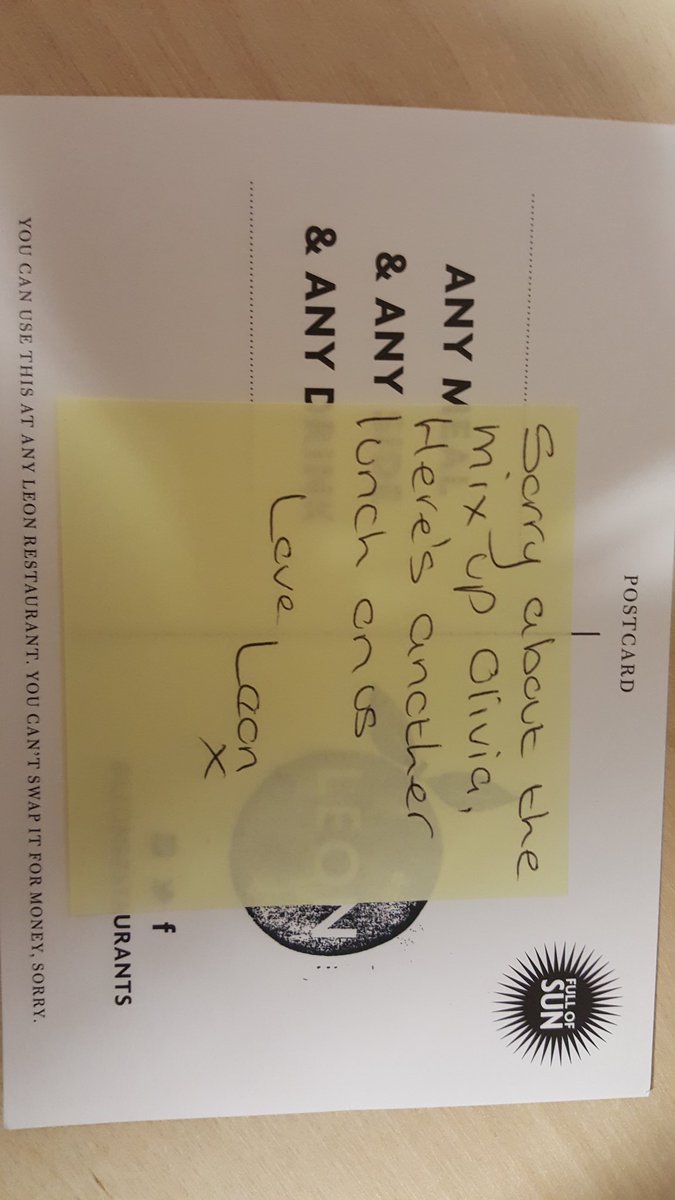 POSTCARD
FULL OF
SUN
ANY MEAL
& ANY SIDE
& ANY DRINK
Sorry about the
mix up Olivia,
Here's another
lunch on us
Love Leon
x
LEON
f
URANTS
YOU CAN USE THIS AT ANY LEON RESTAURANT. YOU CAN'T SWAP IT FOR MONEY, SORRY.